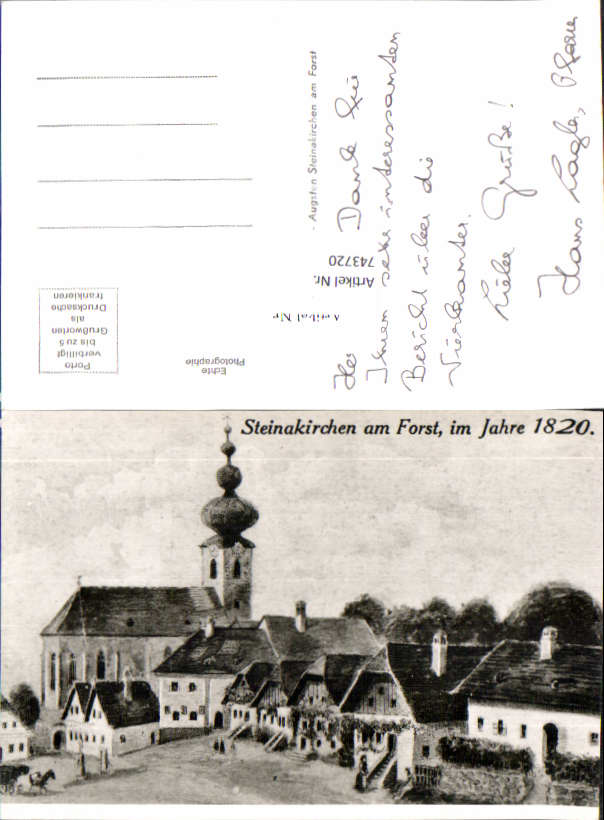 Porto
verbilligt
bis zu 5
Grußworten
als
Drucksache
frankieren
Echte
Photographie
Artikel Nr.
Artikel Nr.
743720
- Augsten Steinakirchen am Forst
Danke für
Ihren sehr interessanten
Bericht über die
Vierkanter.
Liebe Grüße!
Hans Lagler, Pfarrer
Steinakirchen am Forst, im Jahre 1820.